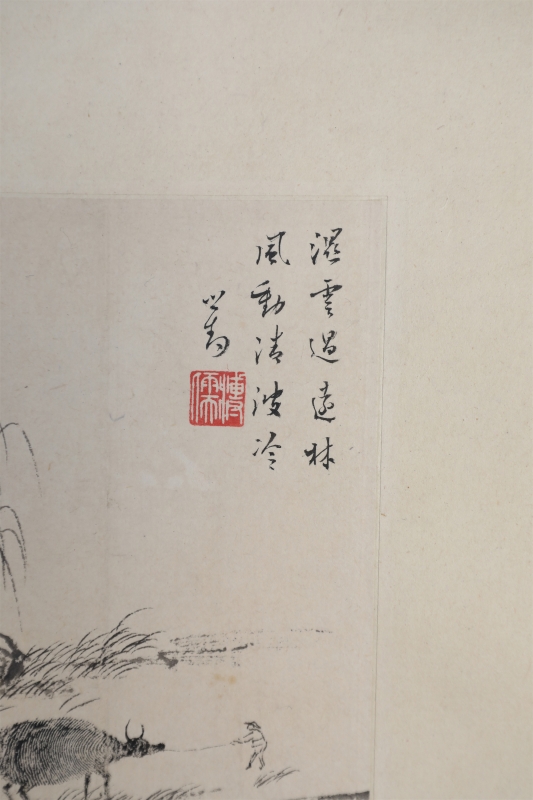 湿雲過遠林
風動清波冷
心畬
溥儒